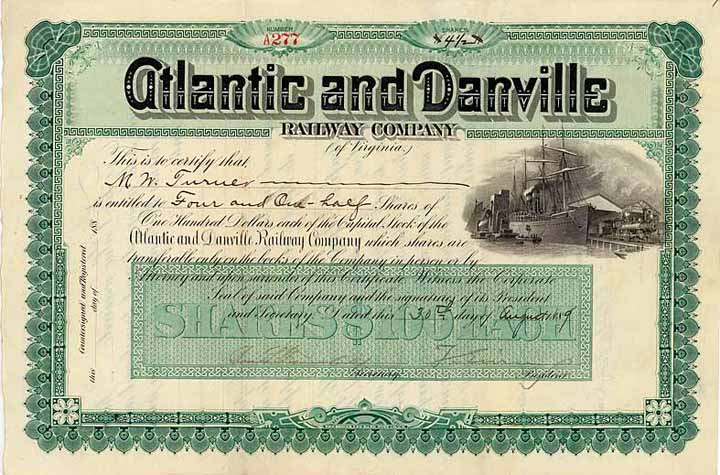 NUMBER
A277
SHARES
*4½*
Atlantic and Danville
RAILWAY COMPANY
(of Virginia)
This is to certify that
M. W. Turner
is entitled to Four and One-half Shares of
One Hundred Dollars each of the Capital Stock of the
Atlantic and Danville Railway Company which shares are
transferable only on the books of the Company in person or by
Attorney and upon surrender of this Certificate. Witness the Corporate
Seal of said Company and the signatures of its President
and Secretary. Dated this 30th day of August 1889
SHARES $100 EACH
Secretary
President
Countersigned and Registered
this day of 188